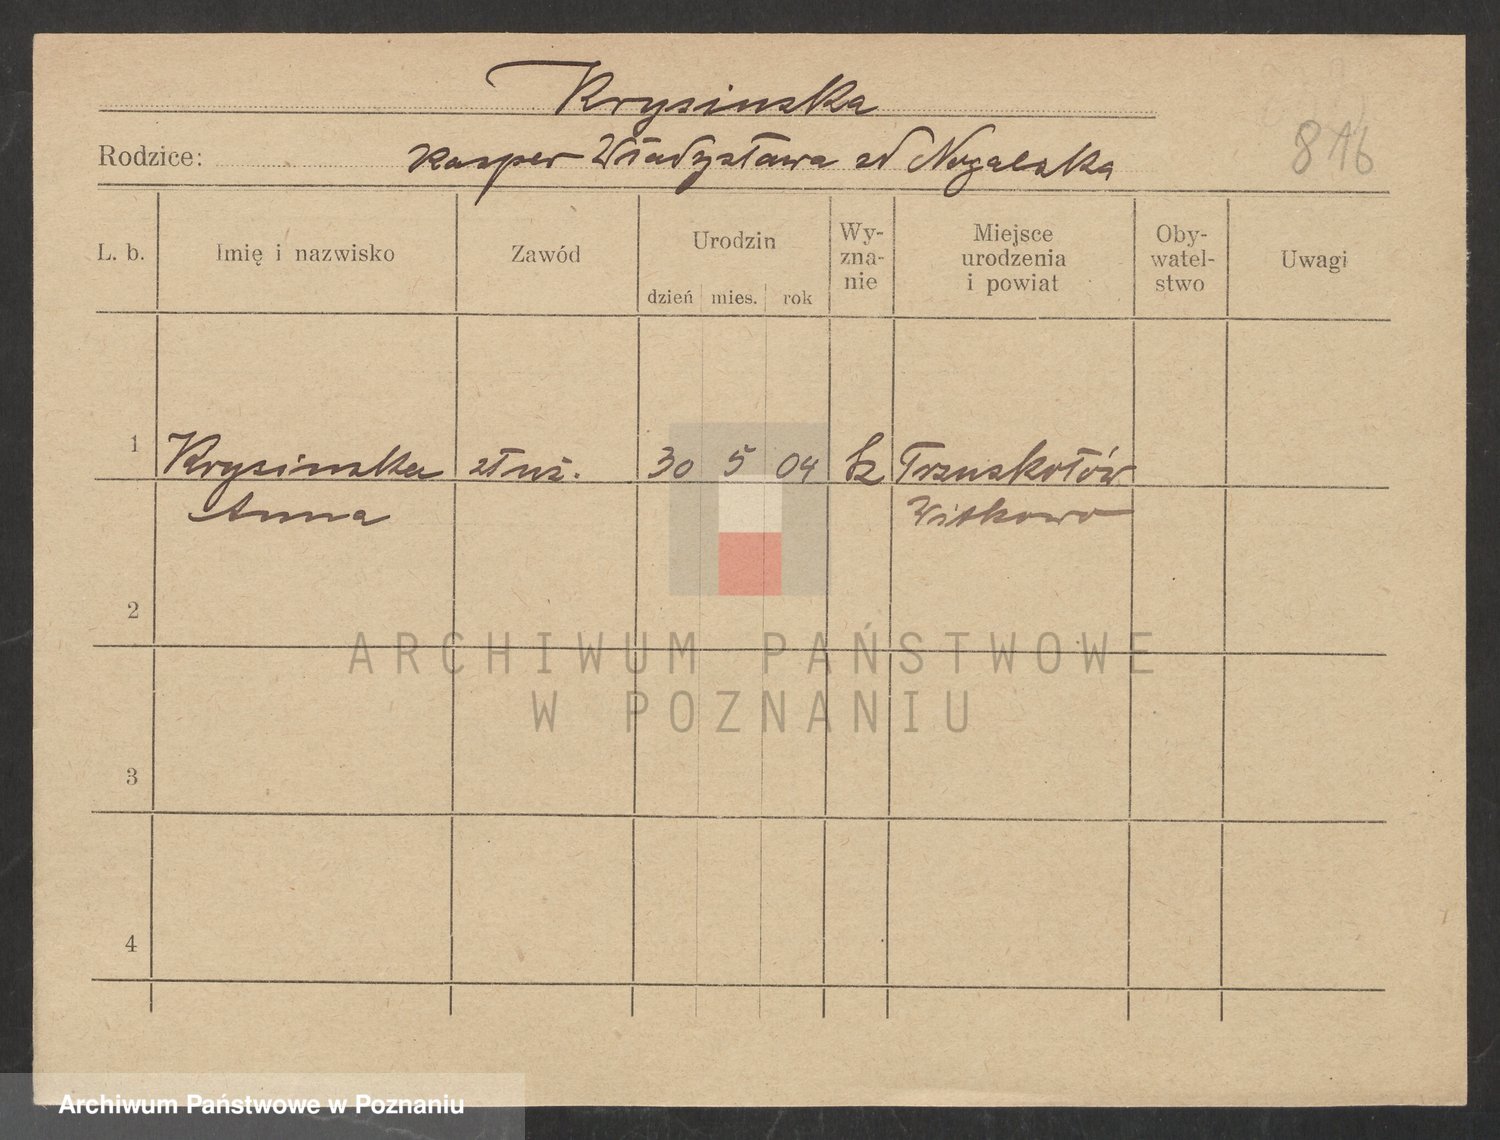 Krysinska
Rodzice: Kasper Władysława zd Nogalska
816
L. b. Imię i nazwisko Zawód Urodzin dzień mies. rok Wy-zna-nie Miejsce urodzenia i powiat Oby-watel-stwo Uwagi
1 Krysinska służ. 30 5 04 kr Trzuskołów
Anna Witkowo
2
ARCHIWUM PAŃSTWOWE
W POZNANIU
3
4
Archiwum Państwowe w Poznaniu